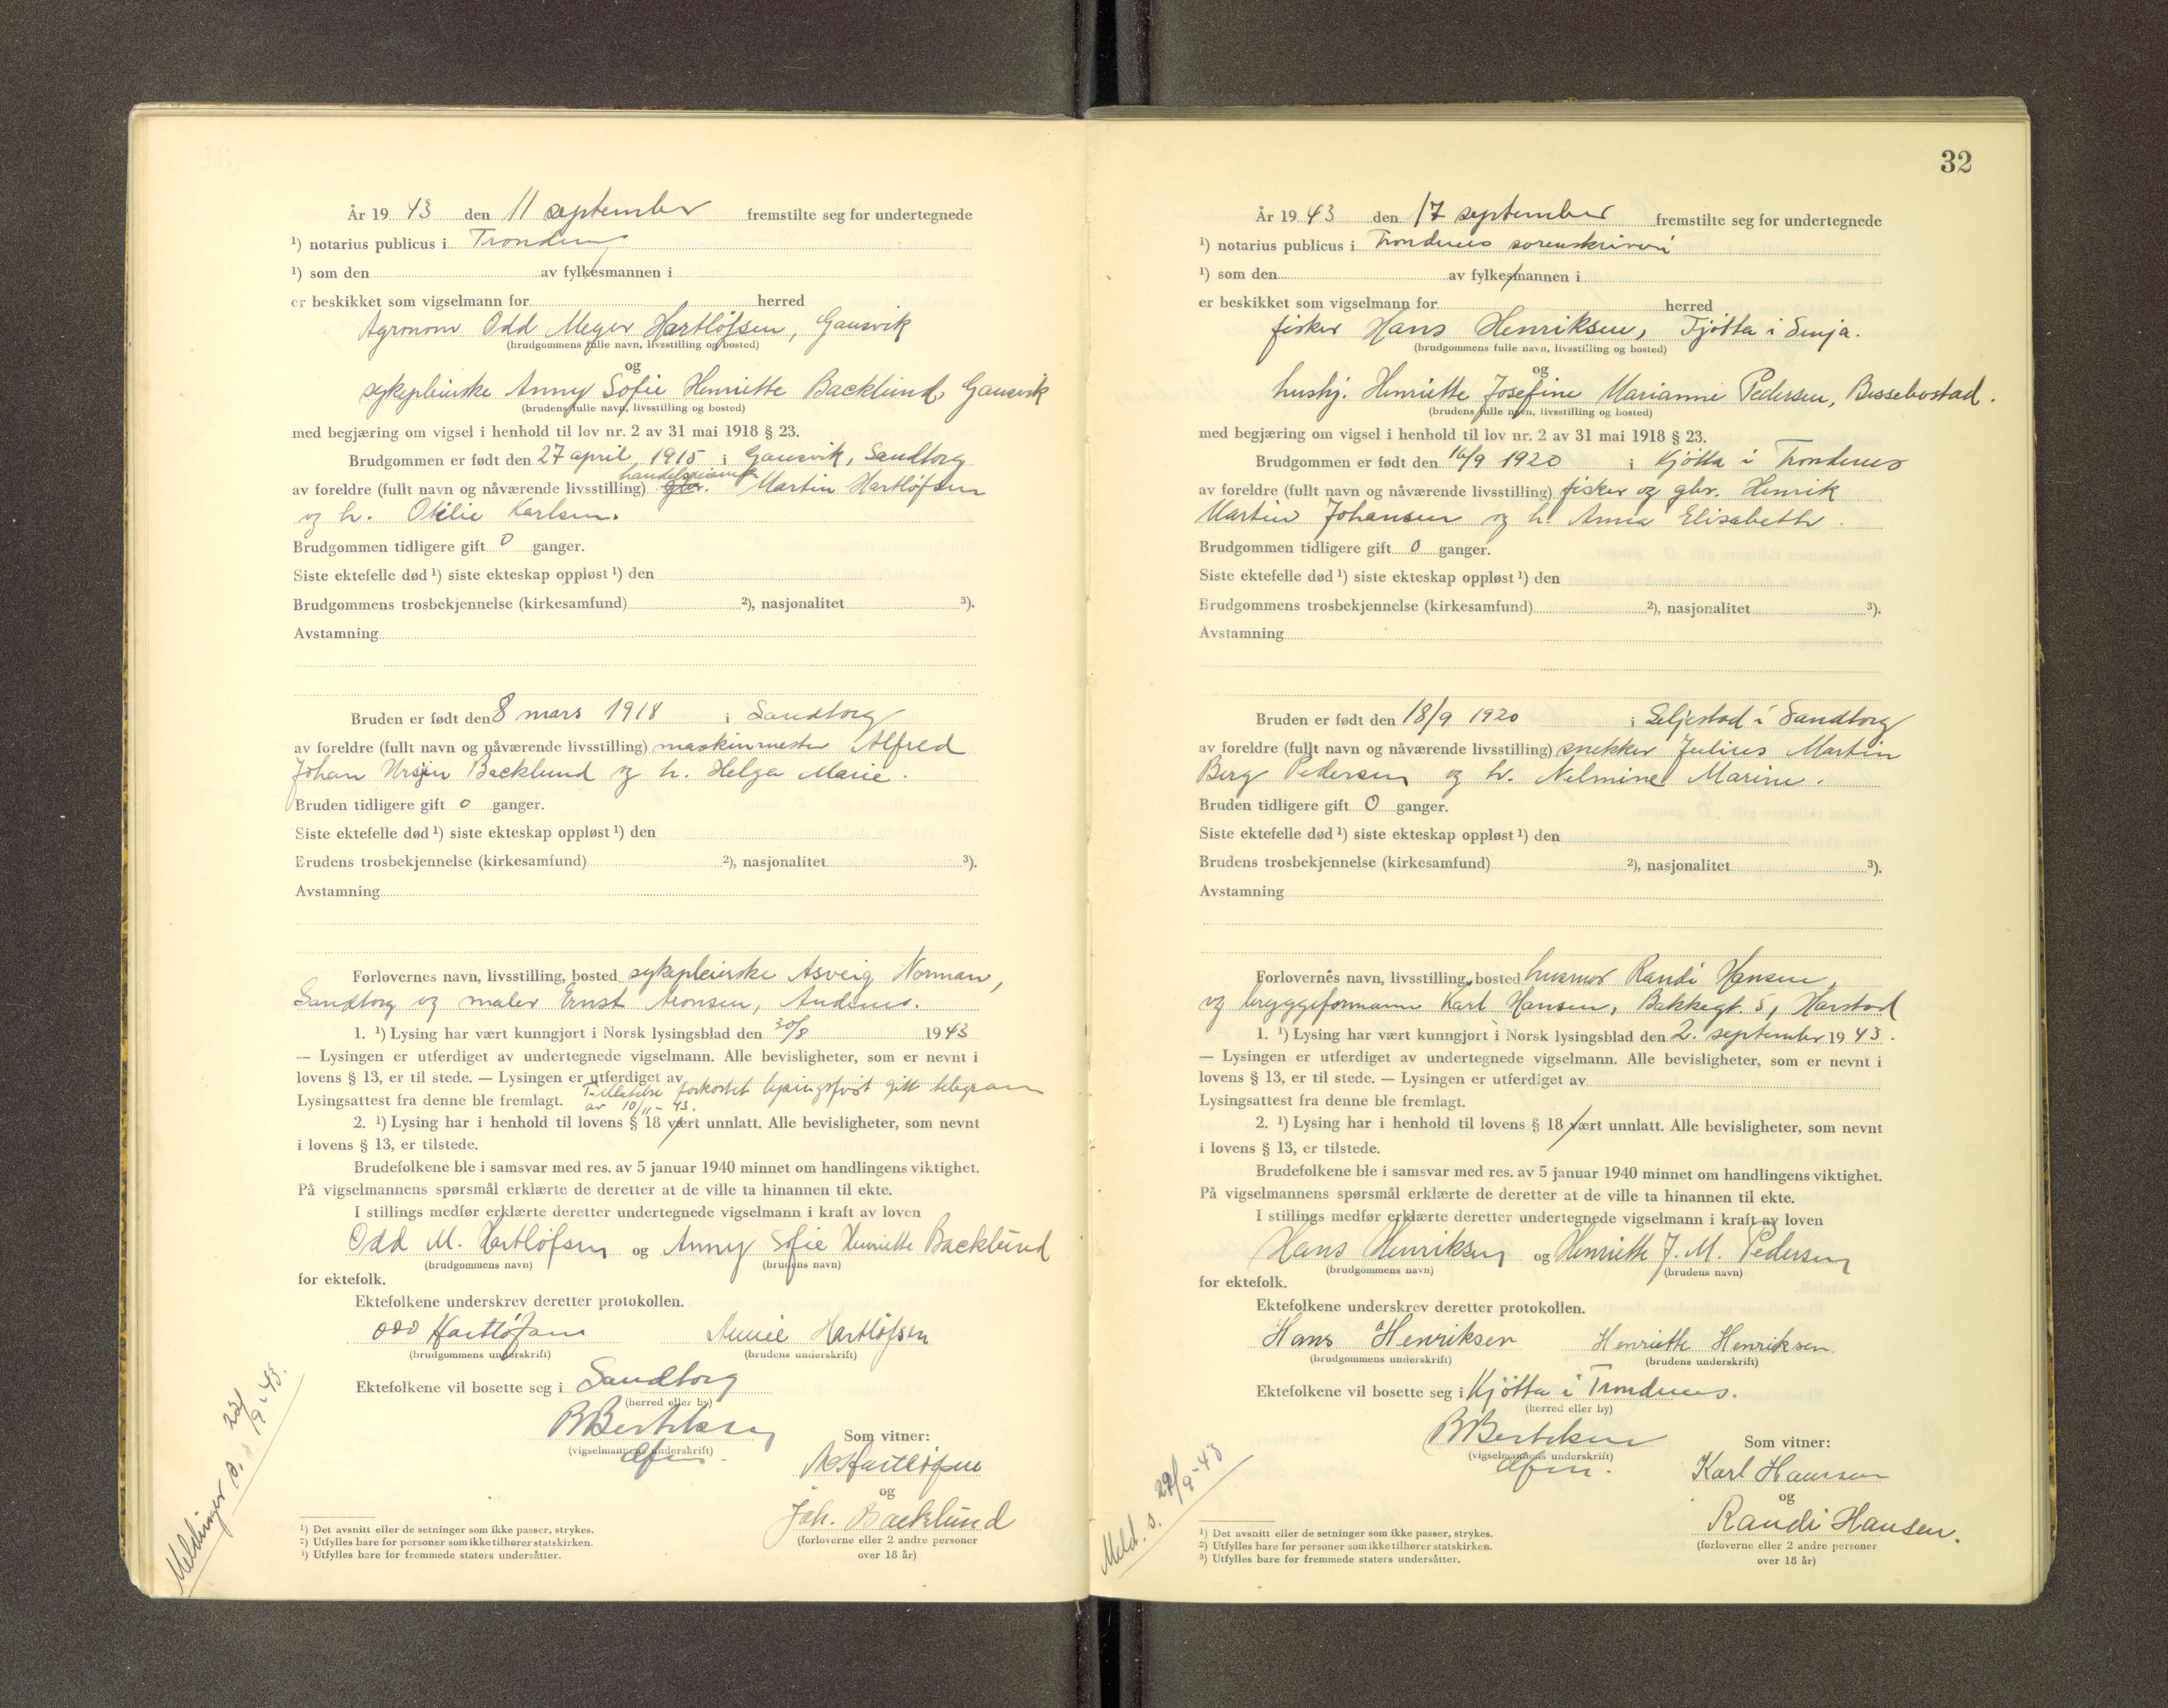 År 1943 den 11 september fremstilte seg for undertegnede
¹) notarius publicus i Trondenes
¹) som den av fylkesmannen i
er beskikket som vigselmann for herred
Agronom Odd Meyer Hartløfsen, Gausvik
(brudgommens fulle navn, livsstilling og bosted)
og
sykepleierske Anny Sofie Henriette Backlund, Gausvik
(brudens fulle navn, livsstilling og bosted)
med begjæring om vigsel i henhold til lov nr. 2 av 31 mai 1918 § 23.
Brudgommen er født den 27 april 1915 i Gausvik, Sandtorg
av foreldre (fullt navn og nåværende livsstilling) gbr. Martin Hartløfsen
og h. Otilie Karlsen.
Brudgommen tidligere gift 0 ganger.
Siste ektefelle død ¹) siste ekteskap oppløst ¹) den
Brudgommens trosbekjennelse (kirkesamfund) ²), nasjonalitet ³).
Avstamning
Bruden er født den 8 mars 1918 i Sandtorg
av foreldre (fullt navn og nåværende livsstilling) maskinmester Alfred
Johan Ursin Backlund og h. Helga Marie.
Bruden tidligere gift 0 ganger.
Siste ektefelle død ¹) siste ekteskap oppløst ¹) den
Brudens trosbekjennelse (kirkesamfund) ²), nasjonalitet ³).
Avstamning
Forlovernes navn, livsstilling, bosted sykepleierske Asveig Norman,
Sandtorg og maler Ernst Aronsen, Andenes.
1. ¹) Lysing har vært kunngjort i Norsk lysingsblad den 30/8 1943
— Lysingen er utferdiget av undertegnede vigselmann. Alle bevisligheter, som er nevnt i
lovens § 13, er til stede. — Lysingen er utferdiget av
Tillatelse forkortet lysingsfrist gitt telegram
Lysingsattest fra denne ble fremlagt. av 10/11-43.
2. ¹) Lysing har i henhold til lovens § 18 vært unnlatt. Alle bevisligheter, som nevnt
i lovens § 13, er tilstede.
Brudefolkene ble i samsvar med res. av 5 januar 1940 minnet om handlingens viktighet.
På vigselmannens spørsmål erklærte de deretter at de ville ta hinannen til ekte.
I stillings medfør erklærte deretter undertegnede vigselmann i kraft av loven
Odd M. Hartløfsen og Anny Sofie Henriette Backlund
(brudgommens navn) (brudens navn)
for ektefolk.
Ektefolkene underskrev deretter protokollen.
Odd Hartløfsen Annie Hartløfsen
(brudgommens underskrift) (brudens underskrift)
Ektefolkene vil bosette seg i Sandtorg
(herred eller by)
B Bertelsen
(vigselmannens underskrift)
Som vitner:
Hartløfsen
og
Joh. Backlund
(forloverne eller 2 andre personer
over 18 år)
Meldinger s. 22/9-43.
¹) Det avsnitt eller de setninger som ikke passer, strykes.
²) Utfylles bare for personer som ikke tilhører statskirken.
³) Utfylles bare for fremmede staters undersåtter.
32
År 1943 den 17 september fremstilte seg for undertegnede
¹) notarius publicus i Trondenes sorenskriveri
¹) som den av fylkesmannen i
er beskikket som vigselmann for herred
fisker Hans Henriksen, Tjøtta i Senja.
(brudgommens fulle navn, livsstilling og bosted)
og
hushj. Henriette Josefine Marianne Pedersen, Bessebostad.
(brudens fulle navn, livsstilling og bosted)
med begjæring om vigsel i henhold til lov nr. 2 av 31 mai 1918 § 23.
Brudgommen er født den 16/9 1920 i Kjøtta i Trondenes
av foreldre (fullt navn og nåværende livsstilling) fisker og gbr. Henrik
Martin Johansen og h. Anna Elisabeth.
Brudgommen tidligere gift 0 ganger.
Siste ektefelle død ¹) siste ekteskap oppløst ¹) den
Brudgommens trosbekjennelse (kirkesamfund) ²), nasjonalitet ³).
Avstamning
Bruden er født den 18/9 1920 i Seljestad i Sandtorg
av foreldre (fullt navn og nåværende livsstilling) snekker Julius Martin
Berg Pedersen og h. Nelmine Marine.
Bruden tidligere gift 0 ganger.
Siste ektefelle død ¹) siste ekteskap oppløst ¹) den
Brudens trosbekjennelse (kirkesamfund) ²), nasjonalitet ³).
Avstamning
Forlovernes navn, livsstilling, bosted husmor Randi Hansen
og bryggeformann Karl Hansen, Bakkegt. 5, Harstad
1. ¹) Lysing har vært kunngjort i Norsk lysingsblad den 2. september 1943.
— Lysingen er utferdiget av undertegnede vigselmann. Alle bevisligheter, som er nevnt i
lovens § 13, er til stede. — Lysingen er utferdiget av
Lysingsattest fra denne ble fremlagt.
2. ¹) Lysing har i henhold til lovens § 18 vært unnlatt. Alle bevisligheter, som nevnt
i lovens § 13, er tilstede.
Brudefolkene ble i samsvar med res. av 5 januar 1940 minnet om handlingens viktighet.
På vigselmannens spørsmål erklærte de deretter at de ville ta hinannen til ekte.
I stillings medfør erklærte deretter undertegnede vigselmann i kraft av loven
Hans Henriksen og Henriette J. M. Pedersen
(brudgommens navn) (brudens navn)
for ektefolk.
Ektefolkene underskrev deretter protokollen.
Hans Henriksen Henriette Henriksen
(brudgommens underskrift) (brudens underskrift)
Ektefolkene vil bosette seg i Kjøtta i Trondenes.
(herred eller by)
B Bertelsen
(vigselmannens underskrift)
Som vitner:
Karl Hanssen
og
Randi Hansen.
(forloverne eller 2 andre personer
over 18 år)
Meld. s. 29/9-43
¹) Det avsnitt eller de setninger som ikke passer, strykes.
²) Utfylles bare for personer som ikke tilhører statskirken.
³) Utfylles bare for fremmede staters undersåtter.